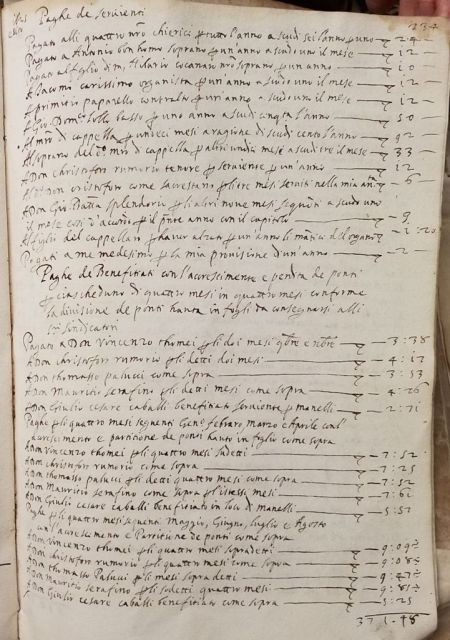 234
Paghe de Servienti
Pagati alli quattro nrõ chierici p tutto l'anno a scudi sei l'anno p uno 24 —
Pagati a Antonio bon homo soprano p un'anno a scudo uno il mese 12 —
Pagati al figlio di m. Hilario soprano p un anno 10 —
A Giacomo carissimo organista p un'anno a scudo uno il mese 12 —
A primitio paparello contralto p un'anno a scudo uno il mese 12 —
A Gio: basso p uno anno a scudi l'anno 50
Al mrõ di cappella p undeci mesi a ragione di scudi cento l'anno 92 —
Al soprano del dº mrõ di cappella p altri undici mesi a scudi tre il mese 33 —
A Don christoforo rumorio tenore p serviente p un'anno 12
Al dº Don cristoforo come sacrestano p li tre mesi serviti nella mia 6
A Don Gio: Batta splendorij p li altri nove mesi seguiti a scudo uno
il mese così d'acordo p il pnte anno con il capitolo 9
Al figlio del cappellaro p haver alzati p un'anno li mantici del organo 1:20
Pagati a me medesimo p la mia provisione d'un'anno 2
Paghe de Benefitiati con l'acrescimente e perdita de ponti
p ciascheduno di quattro mesi in quattro mesi conforme
la divisione de ponti hauta in fogli da consegnarsi alli
Sri Sindicatori
Pagato a Don Vincenzo thomei p li doi mesi 9bre e xbre 3:38
A Don christoforo rumorio p li detti doi mesi 4:12
A Don thomasso palucci come sopra 3:53
A Don Mauritio serafino p li detti mesi come sopra 4:26
A Don Giulio cesare caballi benefitiato serviente p manelli 2:71
Paghe p li quattro mesi seguenti Genº febraro Marzo e Aprile con l'
acrescimento e partitione de ponti hauto in foglio come sopra
A Don Vincenzo thomei p li quattro mesi sudetti 7:52
A Don christoforo rumorio come sopra 7:25
A Don thomasso palucci p li detti quattro mesi come sopra 7:52
A Don Mauritio serafino come sopra p li istessi mesi 7:61
A Don Giulio cesare caballi benefitiato in loco di manelli 5:51
Paghe p li quattro mesi seguenti Maggio, Giugno, luglio e Agosto
con l'acrescimento e Partitione de ponti come sopra
A Don Vincenzo thomei p li quattro mesi sopradetti 9:09½
A Don christoforo rumorio p li quattro mesi come sopra 9:08½
A Don thomasso Palucci p li mesi sopradetti 9:47½
A Don Mauritio serafino p li sodetti quattro mesi 9:81½
A Don Giulio cesare caballi benefitiato come sopra 5:25
371.98